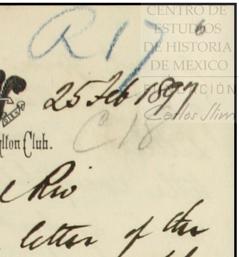 CENTRO DE
ESTUDIOS
DE HISTORIA
DE MEXICO
R17
25 Feb 1897
Carlos Slim
C18
lton Club.
Rio
letter of the